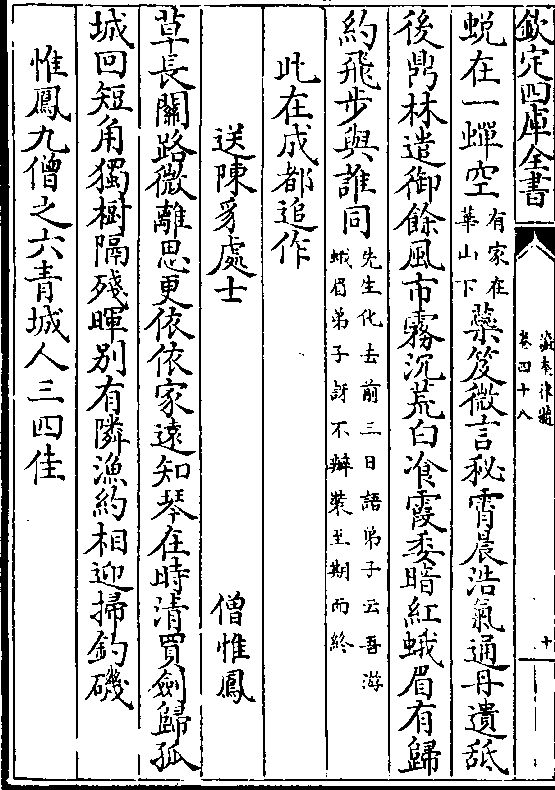 欽定四庫全書
瀛奎律髓
卷四十八
十
蛻在一蟬空有家在華山下藥笈微言秘霄晨浩氣通丹遺舐
後鼎林遣御餘風市霧沉荒白飡霞委暗紅蛾眉有歸
約飛步與誰同先生化去前三日語弟子云吾游蛾眉弟子訝不辦裝至期而終
此在成都追作
送陳豸處士　僧惟鳳
草長關路微離思更依依家遠知琴在時清買劍歸孤
城回短角獨樹隔殘暉別有隣漁約相迎掃釣磯
惟鳳九僧之六青城人三四佳